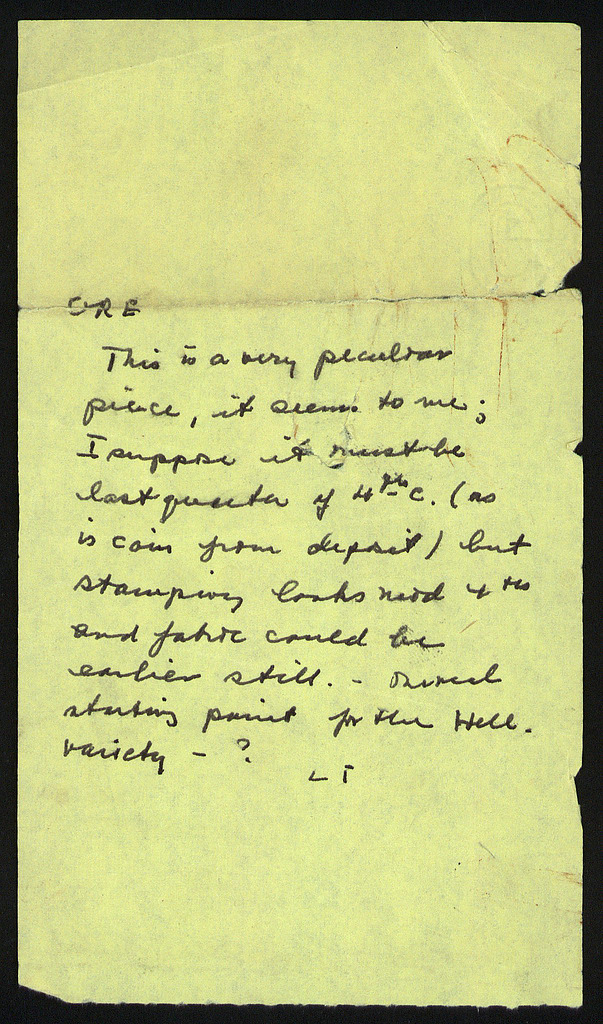 GRE
This is a very peculiar
piece, it seems to me;
I suppose it must be
last quarter of 4th c. (as
is coin from deposit) but
stamping looks mid 4th
and fabric could be
earlier still. -
starting point for the Hell.
variety - ?
LT